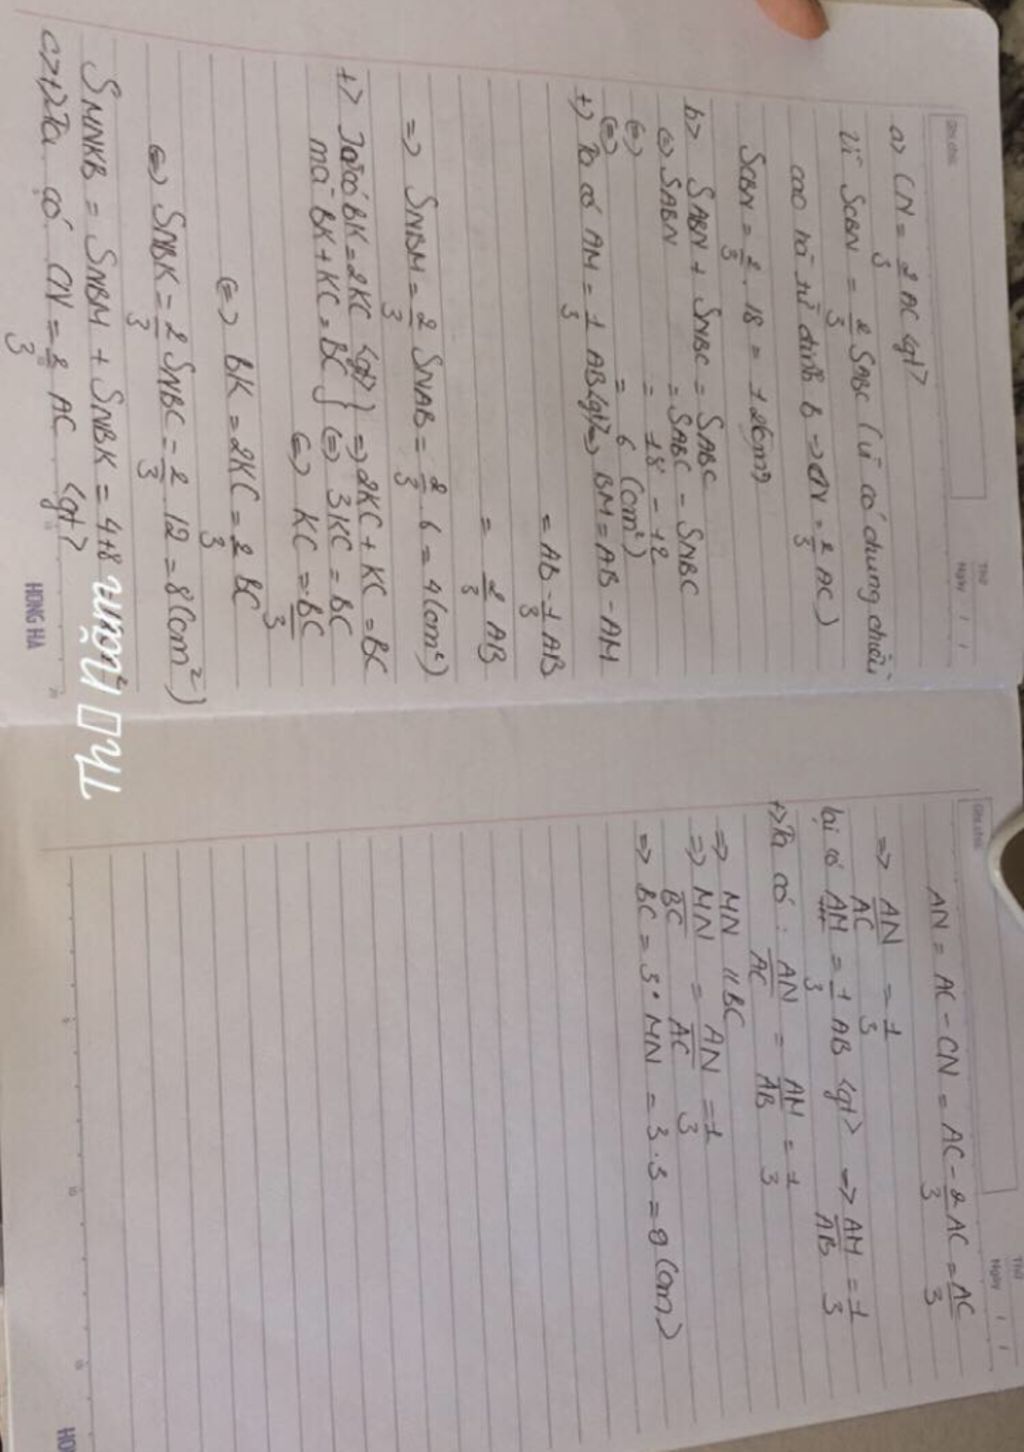 Ghi chú:
Thứ
Ngày / /
a> CN = 2/3 AC <gt>
Vì SCBN = 2/3 SABC (vì có chung chiều
cao hạ từ đỉnh B => CN = 2/3 AC)
SCBN = 2/3 . 18 = 12 (cm²)
b> SABN + SNBC = SABC
<=> SABN = SABC - SNBC
<=> = 18 - 12
<=> = 6 (cm²)
+> Ta có AM = 1/3 AB <gt> => BM = AB - AM
= AB - 1/3 AB
= 2/3 AB
=> SNBM = 2/3 SNAB = 2/3 6 = 4 (cm²)
+> Ta có BK = 2KC <gt> } => 2KC + KC = BC
mà BK + KC = BC } <=> 3KC = BC
<=> KC = BC/3
<=> BK = 2KC = 2/3 BC
<=> SNBK = 2/3 SNBC = 2/3 12 = 8 (cm²)
SMNKB = SNBM + SNBK = 4+8
c> +> Ta có CN = 2/3 AC <gt>
HONG HA
Th□ Nặm
Ghi chú:
Thứ
Ngày / /
AN = AC - CN = AC - 2/3 AC = AC/3
=> AN/AC = 1/3
lại có AM = 1/3 AB <gt> => AM/AB = 1/3
+> Ta có : AN/AC = AM/AB = 1/3
=> MN // BC
=> MN/BC = AN/AC = 1/3
=> BC = 3 . MN = 3 . 3 = 9 (cm)
HO